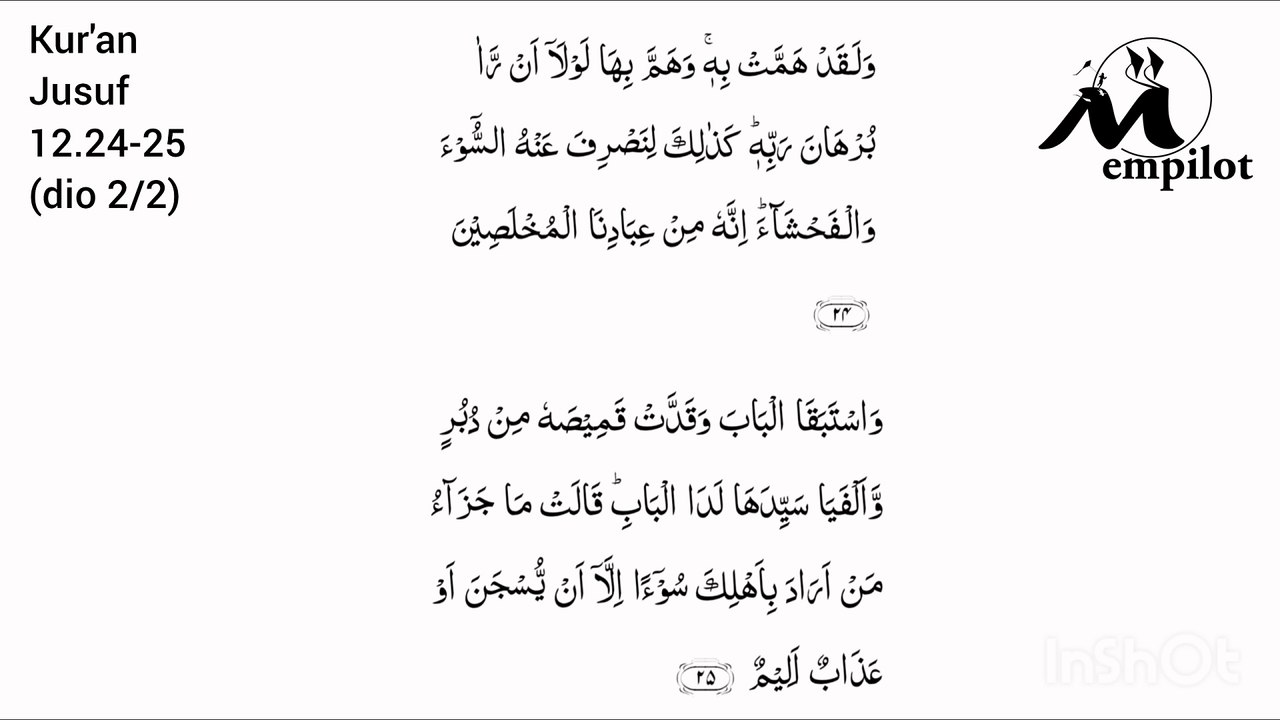 Kur'an
Jusuf
12.24-25
(dio 2/2)
Mempilot
وَلَقَدْ هَمَّتْ بِهٖۚ وَهَمَّ بِهَا لَوْلَاۤ اَنْ رَّاٰ
بُرْهَانَ رَبِّهٖؕ كَذٰلِكَ لِنَصْرِفَ عَنْهُ السُّوْٓءَ
وَالْفَحْشَآءَؕ اِنَّهٗ مِنْ عِبَادِنَا الْمُخْلَصِيْنَ
۲۴
وَاسْتَبَقَا الْبَابَ وَقَدَّتْ قَمِيْصَهٗ مِنْ دُبُرٍ
وَّاَلْفَيَا سَيِّدَهَا لَدَا الْبَابِؕ قَالَتْ مَا جَزَآءُ
مَنْ اَرَادَ بِاَهْلِكَ سُوْٓءًا اِلَّاۤ اَنْ يُّسْجَنَ اَوْ
عَذَابٌ اَلِيْمٌ ۲۵
InShOt